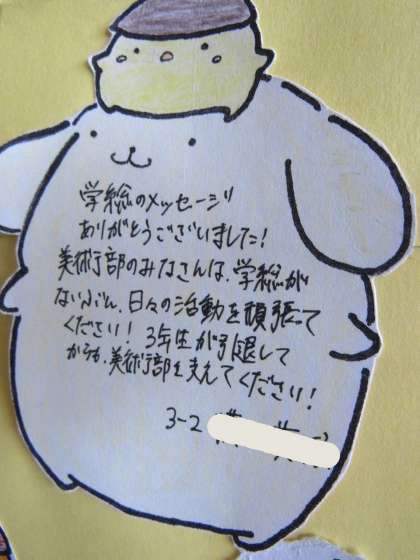 学総のメッセージ
ありがとうございました!
美術部のみなさんは、学総が
ないぶん、日々の活動を頑張って
ください! 3年生が引退して
からも、美術部を支えてください!
3-2